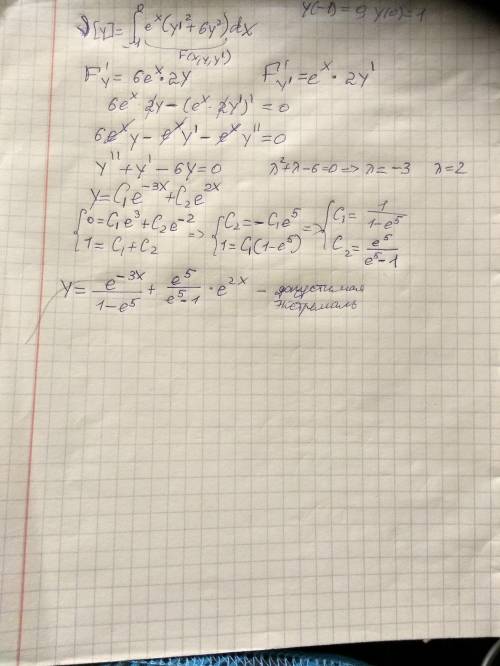 y(-1)=0, y(0)=1
J[y]=∫₋₁⁰ eˣ(y'²+6y²)dx
F(x,y,y')
F'y=6eˣ·2y F'y'=eˣ·2y'
6eˣ·2y-(eˣ·2y')'=0
6eˣy-eˣy'-eˣy''=0
y''+y'-6y=0 λ²+λ-6=0=>λ=-3 λ=2
y=C₁e⁻³ˣ+C₂e²ˣ
{0=C₁e³+C₂e⁻² 1=C₁+C₂ => {C₂=-C₁e⁵ 1=C₁(1-e⁵) => {C₁=1/(1-e⁵) C₂=e⁵/(e⁵-1)
y=e⁻³ˣ/(1-e⁵)+e⁵/(e⁵-1)·e²ˣ - допустимая
экстремаль